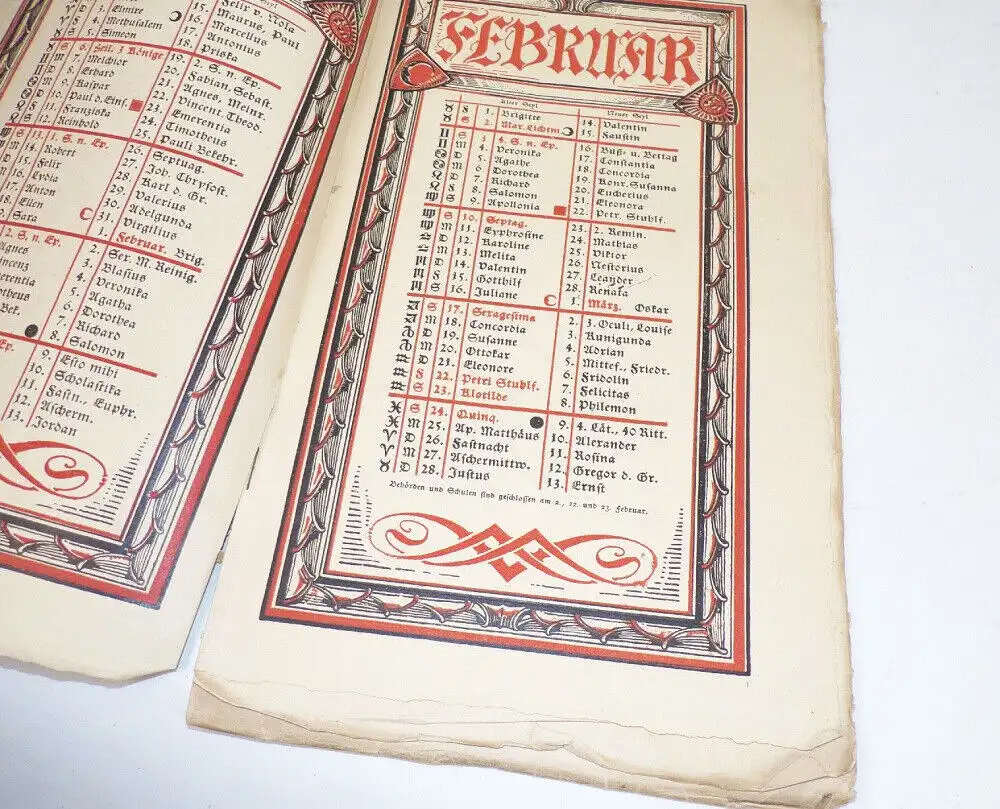 3. Elmire
4. Methusalem
5. Simeon
S 6. Heil. 3 Könige
M 7. Melchior
D 8. Erhard
M 9. Kaspar
D 10. Paul d. Eins.
F 11. Franziska
S 12. Reinhold
S 13. 1. S. n. Ep.
M 14. Robert
D 15. Felix
M 16. Lydia
17. Anton
18. Ellen
Sara
2. S. n. Ep.
Agnes
15. Felix v. Nola
16. Maurus, Paul
17. Marcellus
18. Antonius
Priska
19. 2. S. n. Ep.
20. Fabian, Sebast.
21. Agnes, Meinr.
22. Vincent.
23. Emerentia
24. Timotheus
25. Pauli Bekehr.
26. Septuag.
27. Joh. Chrysost.
28. Karl d. Gr.
29. Valerius
30. Adelgunda
31. Virgilius
1. Februar. Brig.
2. Ser. M. Reinig.
3. Blasius
4. Veronika
5. Agatha
6. Dorothea
7. Richard
8. Salomon
9. Esto mihi
10. Scholastika
11. Fastn., Euphr.
12. Ascherm.
13. Jordan
FEBRUAR
Alter Styl
Neuer Styl
F 1. Brigitte 14. Valentin
S 2. Mar. Lichtm. 15. Faustin
S 3. 4. S. n. Ep. 16. Buß- u. Bettag
M 4. Veronika 17. Constantia
D 5. Agathe 18. Concordia
M 6. Dorothea 19. Konr. Susanna
D 7. Richard 20. Eucherius
F 8. Salomon 21. Eleonora
S 9. Apollonia 22. Petr. Stuhlf.
S 10. Septag. 23. 2. Remin.
M 11. Euphrosine 24. Mathias
D 12. Karoline 25. Viktor
M 13. Melita 26. Nestorius
D 14. Valentin 27. Leander
F 15. Gotthilf 28. Renata
S 16. Juliane 1. März. Oskar
S 17. Seragesima 2. 3. Oculi, Louise
M 18. Concordia 3. Kunigunda
D 19. Susanne 4. Adrian
M 20. Ottokar 5. Mittef., Friedr.
D 21. Eleonore 6. Fridolin
F 22. Petri Stuhlf. 7. Felicitas
S 23. Klotilde 8. Philemon
S 24. Quinq. 9. 4. Lät., 40 Ritt.
M 25. Ap. Matthäus 10. Alexander
D 26. Fastnacht 11. Rosina
M 27. Aschermittw. 12. Gregor d. Gr.
D 28. Justus 13. Ernst
Behörden und Schulen sind geschlossen am 2., 22. und 23. Februar.